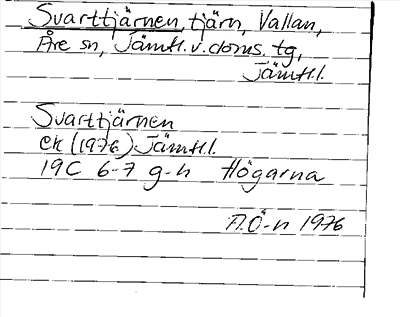 Svarttjärnen, tjärn, Vallan,
Åre sn, Jämtl. v. doms. tg,
Jämtl.
Svarttjärnen
ek (1976) Jämtl.
19C 6-7 g-h Högarna
A.Ö-n 1976